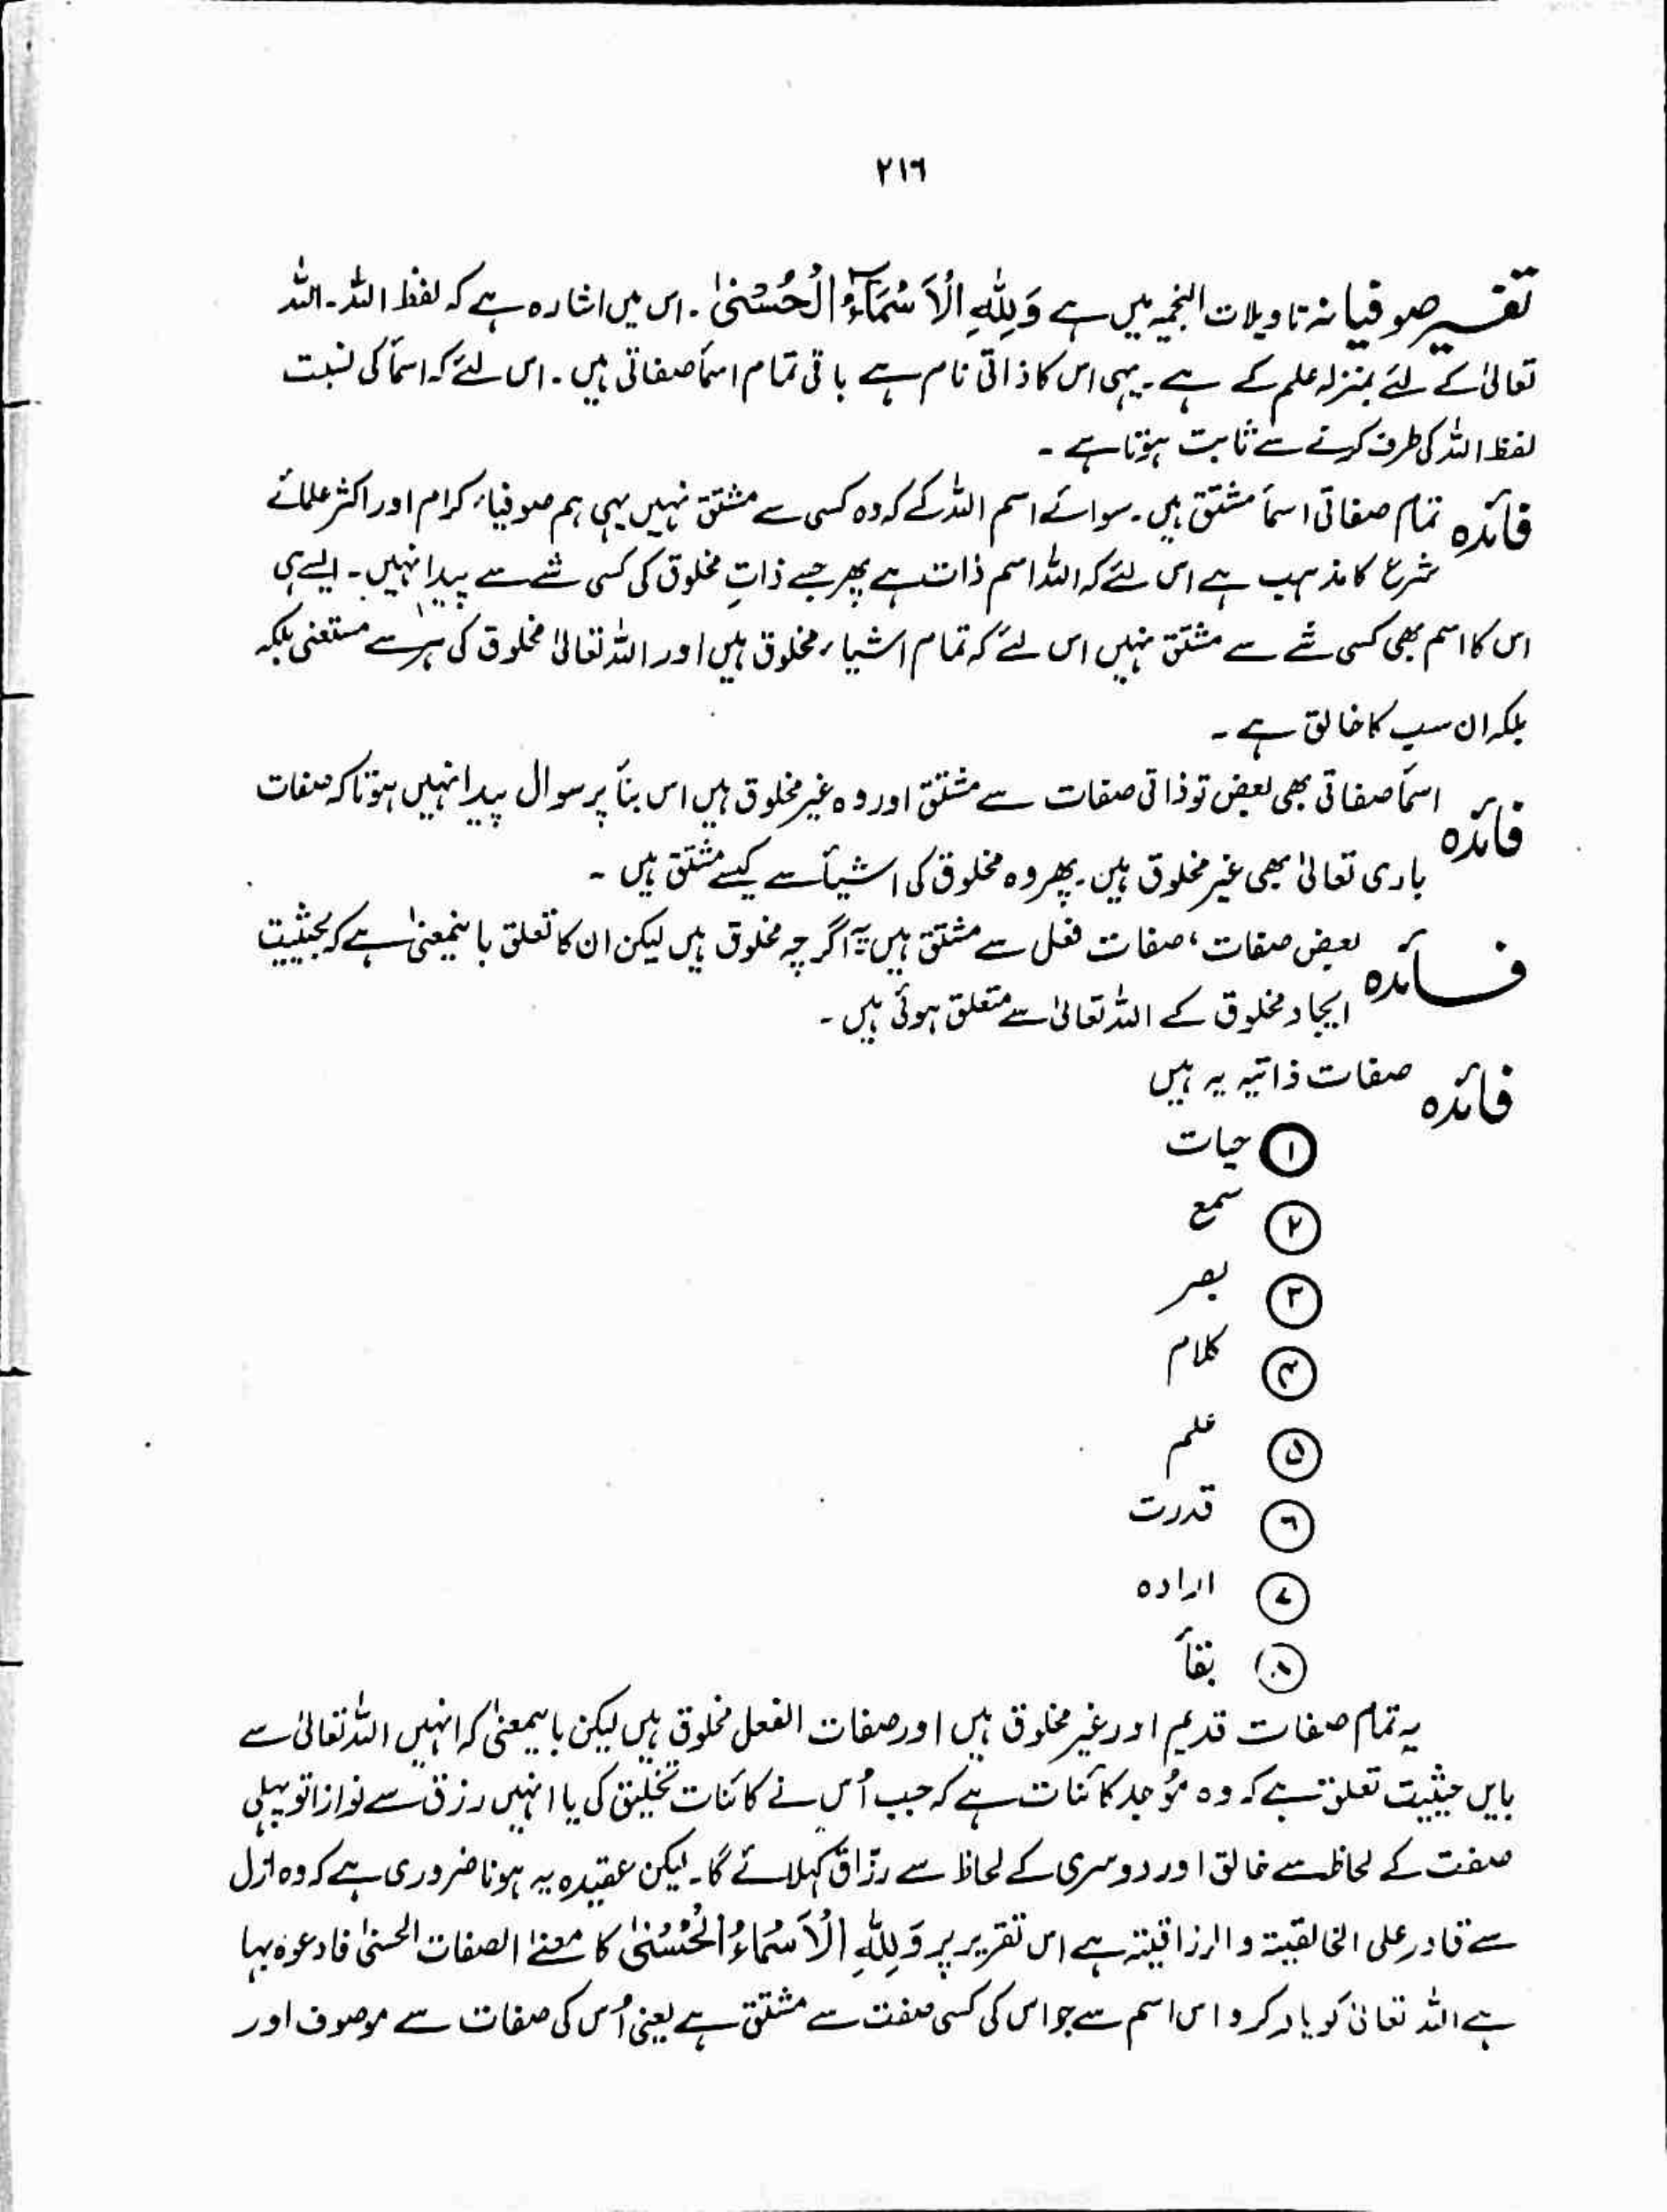 ۲۱۶
تفسیر صوفیانہ تاویلات النجمیہ میں ہے وَلِلّٰہِ الْاَسْمَآءُ الْحُسْنٰی۔ اس میں اشارہ ہے کہ لفظ اللہ۔ اللہ
تعالیٰ کے لئے بمنزلہ علم کے ہے۔ یہی اس کا ذاتی نام ہے باقی تمام اسمأ صفاتی ہیں۔ اس لئے کہ اسمأ کی نسبت
لفظ اللہ کی طرف کرنے سے ثابت ہوتا ہے۔
فائدہ تمام صفاتی اسمأ مشتق ہیں۔ سوائے اسم اللہ کے کہ وہ کسی سے مشتق نہیں یہی ہم صوفیاء کرام اور اکثر علمائے
شرع کا مذہب ہے اس لئے کہ اللہ اسم ذات ہے پھر جسے ذاتِ مخلوق کی کسی شے سے پیدا نہیں۔ ایسے ہی
اس کا اسم بھی کسی شے سے مشتق نہیں اس لئے کہ تمام اشیاء مخلوق ہیں اور اللہ تعالیٰ مخلوق کی ہر سے مستغنی بلکہ
بلکہ ان سب کا خالق ہے۔
فائدہ اسمأ صفاتی بھی بعض تو ذاتی صفات سے مشتق اور وہ غیر مخلوق ہیں اس بنأ پر سوال پیدا نہیں ہوتا کہ صفات
باری تعالیٰ بھی غیر مخلوق ہیں۔ پھر وہ مخلوق کی اشیأ سے کیسے مشتق ہیں۔
فائدہ بعض صفات، صفات فعل سے مشتق ہیں یہ اگرچہ مخلوق ہیں لیکن ان کا تعلق باینمعنیٰ ہے کہ بحیثیت
ایجاد مخلوق کے اللہ تعالیٰ سے متعلق ہوئی ہیں۔
فائدہ صفات ذاتیہ یہ ہیں
① حیات
② سمع
③ بصر
④ کلام
⑤ علم
⑥ قدرت
⑦ ارادہ
⑧ بقأ
یہ تمام صفات قدیم اور غیر مخلوق ہیں اور صفات الفعل مخلوق ہیں لیکن بایمعنیٰ کہ انہیں اللہ تعالیٰ سے
بایں حیثیت تعلق ہے کہ وہ مُوجد کائنات ہے کہ جب اُس نے کائنات تخلیق کی یا انہیں رزق سے نوازا تو پہلی
صفت کے لحاظ سے خالق اور دوسری کے لحاظ سے رزّاق کہلائے گا۔ لیکن عقیدہ یہ ہونا ضروری ہے کہ وہ ازل
سے قادر علی الخالقیتہ و الرزاقیتہ ہے اس تقریر پر وَلِلّٰہِ الْاَسْمَاءُ الْحُسْنٰی کا معنےٰ الصفات الحسنیٰ فادعوہ بہا
ہے اللہ تعالیٰ کو یاد کرو اس اسم سے جو اس کی کسی صفت سے مشتق ہے یعنی اُس کی صفات سے موصوف اور